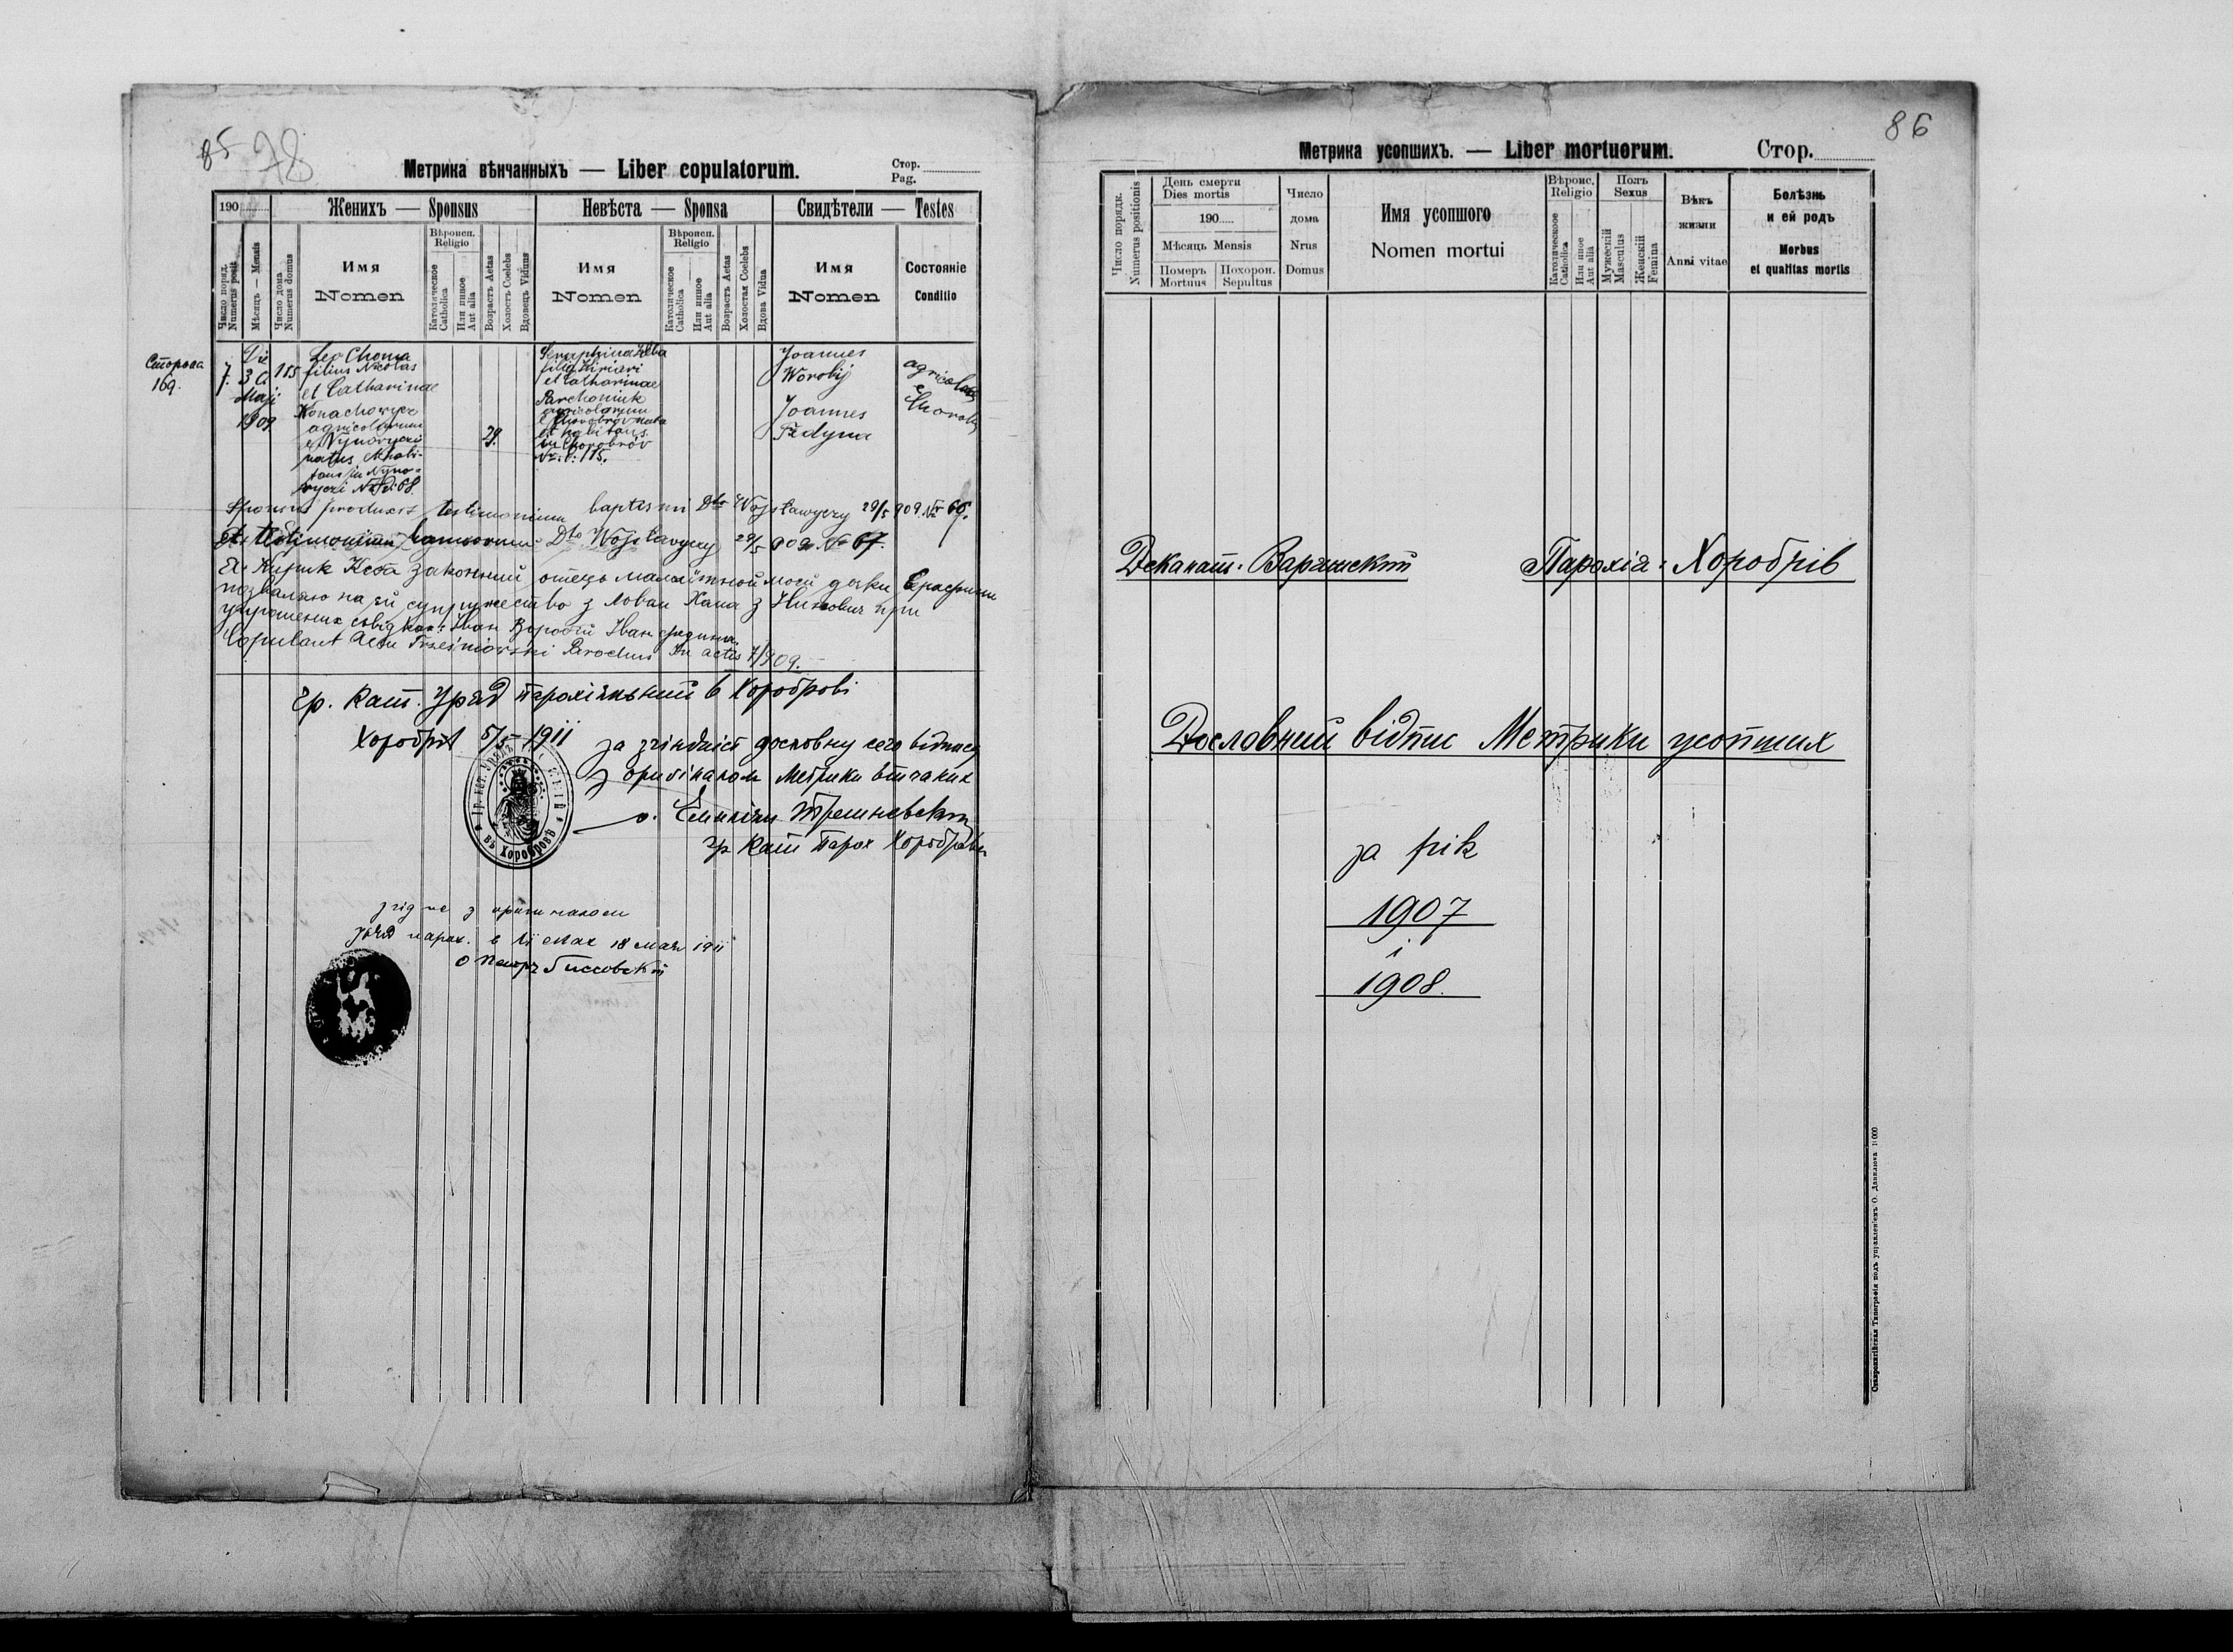 85 78
Метрика вѣнчанныхъ — Liber copulatorum.
Стор.
Pag.
190
Женихъ — Sponsus
Невѣста — Sponsa
Свидѣтели — Testes
Число поряд.
Numerus posit.
Мѣсяцъ — Mensis
Число дома
Numerus domus
Имя
Nomen
Вѣроисп.
Religio
Католическое
Catholica
Или иное
Aut alia
Возрастъ Aetas
Холостъ Coelebs
Вдовецъ Viduus
Имя
Nomen
Вѣроисп.
Religio
Католическое
Catholica
Или иное
Aut alia
Возрастъ Aetas
Холостая Coelebs
Вдова Vidua
Имя
Nomen
Состояніе
Conditio
Сторона
169.
7.
Die
3 a
Maji
1909
115
Leo Choma
filius Nicolas
et Catharinae
Konachowycz
agricolarum
e Nynovyczi
natus et habi-
tans in Nyno-
vyczi Nr. D. 68.
29.
Seraphina Keba
filia Kirieri
et Catharinae
Parchoniuk
agricolarum
e Chorobrów nata
et habitans
in Chorobrów
Nr. D. 115.
Joannes
Worobij
Joannes
Fedyna
agricolae
e
Chorobr.
Sponsus produxit testimonium baptismi Dto Wojsławyczy 29/5 909 № 66.
et testimonium bannorum Dto Wojsławyczy 29/5 909 № 67.
Я Кирик Кеба законний отець малолїтной моєй дочки Єрафини
позваляю на єй супружество з Львом Хома з Нинович при
упрошених свідках: Іван Воробій Іван Федина.
Copulavit Aem Trześniowski Parochus In actis 7/909.
Гр. кат. Уряд парохіяльний в Хороброві
Хоробрів 5/5 1911
За згідність дословну сего відпису
з оригіналом Метрики вінчаних
о. Емиліян Трешневский
гр кат парох Хоробрів
Гр. кат. Урядъ
въ Хоробровѣ
згідне з оригиналом
Уряд парох. в 18 мая 1911
о Петръ
86
Метрика усопшихъ. — Liber mortuorum.
Стор.
Число порядк.
Numerus positionis
День смерти
Dies mortis
190
Мѣсяцъ Mensis
Померъ
Mortuus
Похорон.
Sepultus
Число
дома
Nrus
Domus
Имя усопшого
Nomen mortui
Вѣроис.
Religio
Католическое
Catholica
Или иное
Aut alia
Полъ
Sexus
Мужескій
Masculus
Женскій
Femina
Вѣкъ
жизни
Anni vitae
Болѣзнь
и ей родъ
Morbus
et qualitas mortis
Деканат: Варяжский
Парохія: Хоробрів
Дословний відпис Метрики усопших
за рік
1907
і
1908.
Ставропигійская Типографія подъ управленіемъ О. Данилюка